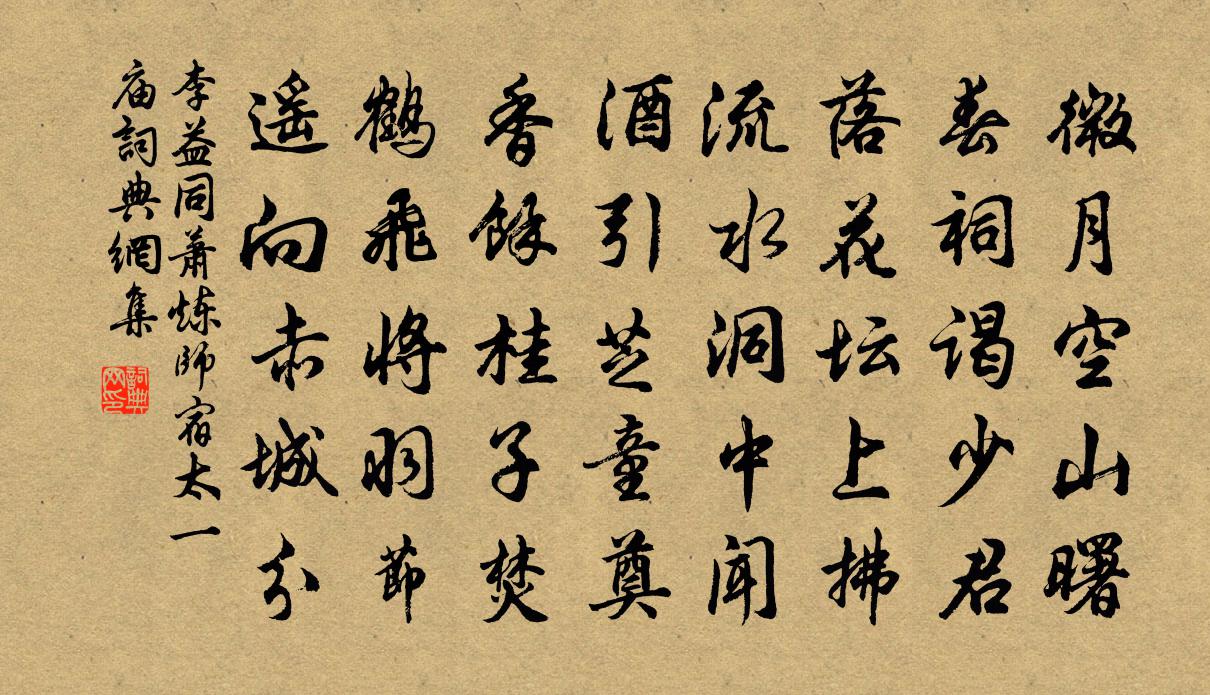 微月空山曙
春祠谒少君
落花坛上拂
流水洞中闻
酒引芝童奠
香餘桂子焚
鹤飛将羽節
遥向赤城分
李益同萧炼師宿太一
庙詞典網集
詞典
网印